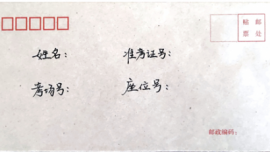 贴邮
票处
姓名： 准考证号：
考场号： 座位号：
邮政编码：